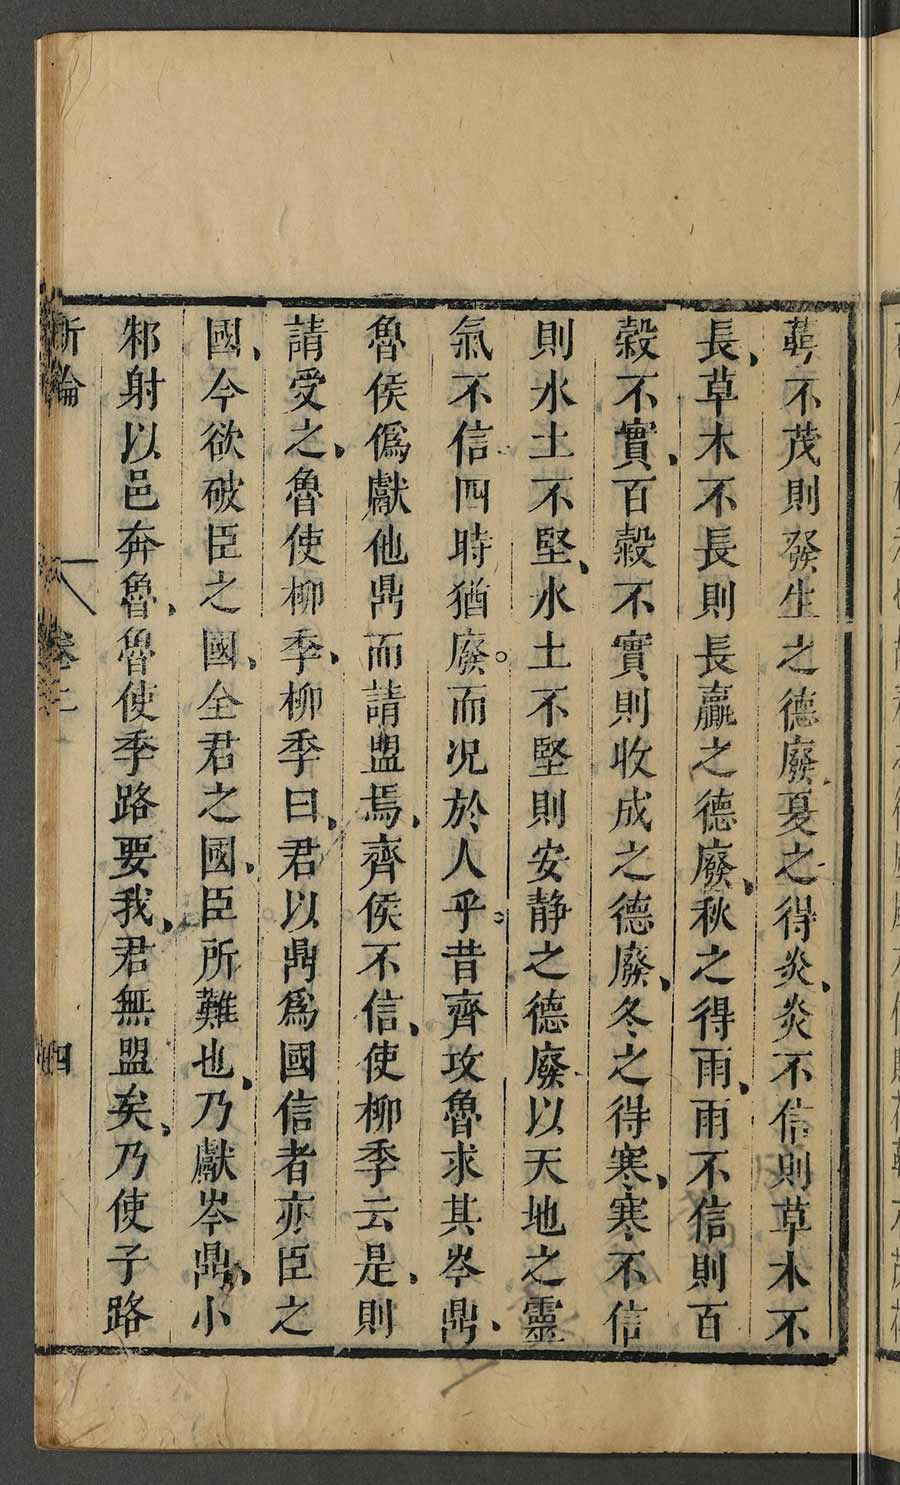 萼不茂則發生之德廢夏之得炎炎不信則草木不
長草木不長則長贏之德廢秋之得雨雨不信則百
穀不實百穀不實則收成之德廢冬之得寒寒不信
則水土不堅水土不堅則安静之德廢以天地之靈
氣不信四時猶廢。而况於人乎。昔齊攻魯求其岑鼎
魯侯僞獻他鼎而請盟焉齊侯不信使柳季云是則
請受之魯使柳季柳季曰君以鼎爲國信者亦臣之
國今欲破臣之國全君之國臣所難也乃獻岑鼎小
邾射以邑奔魯魯使季路要我君無盟矣乃使子路
新論 卷二 四